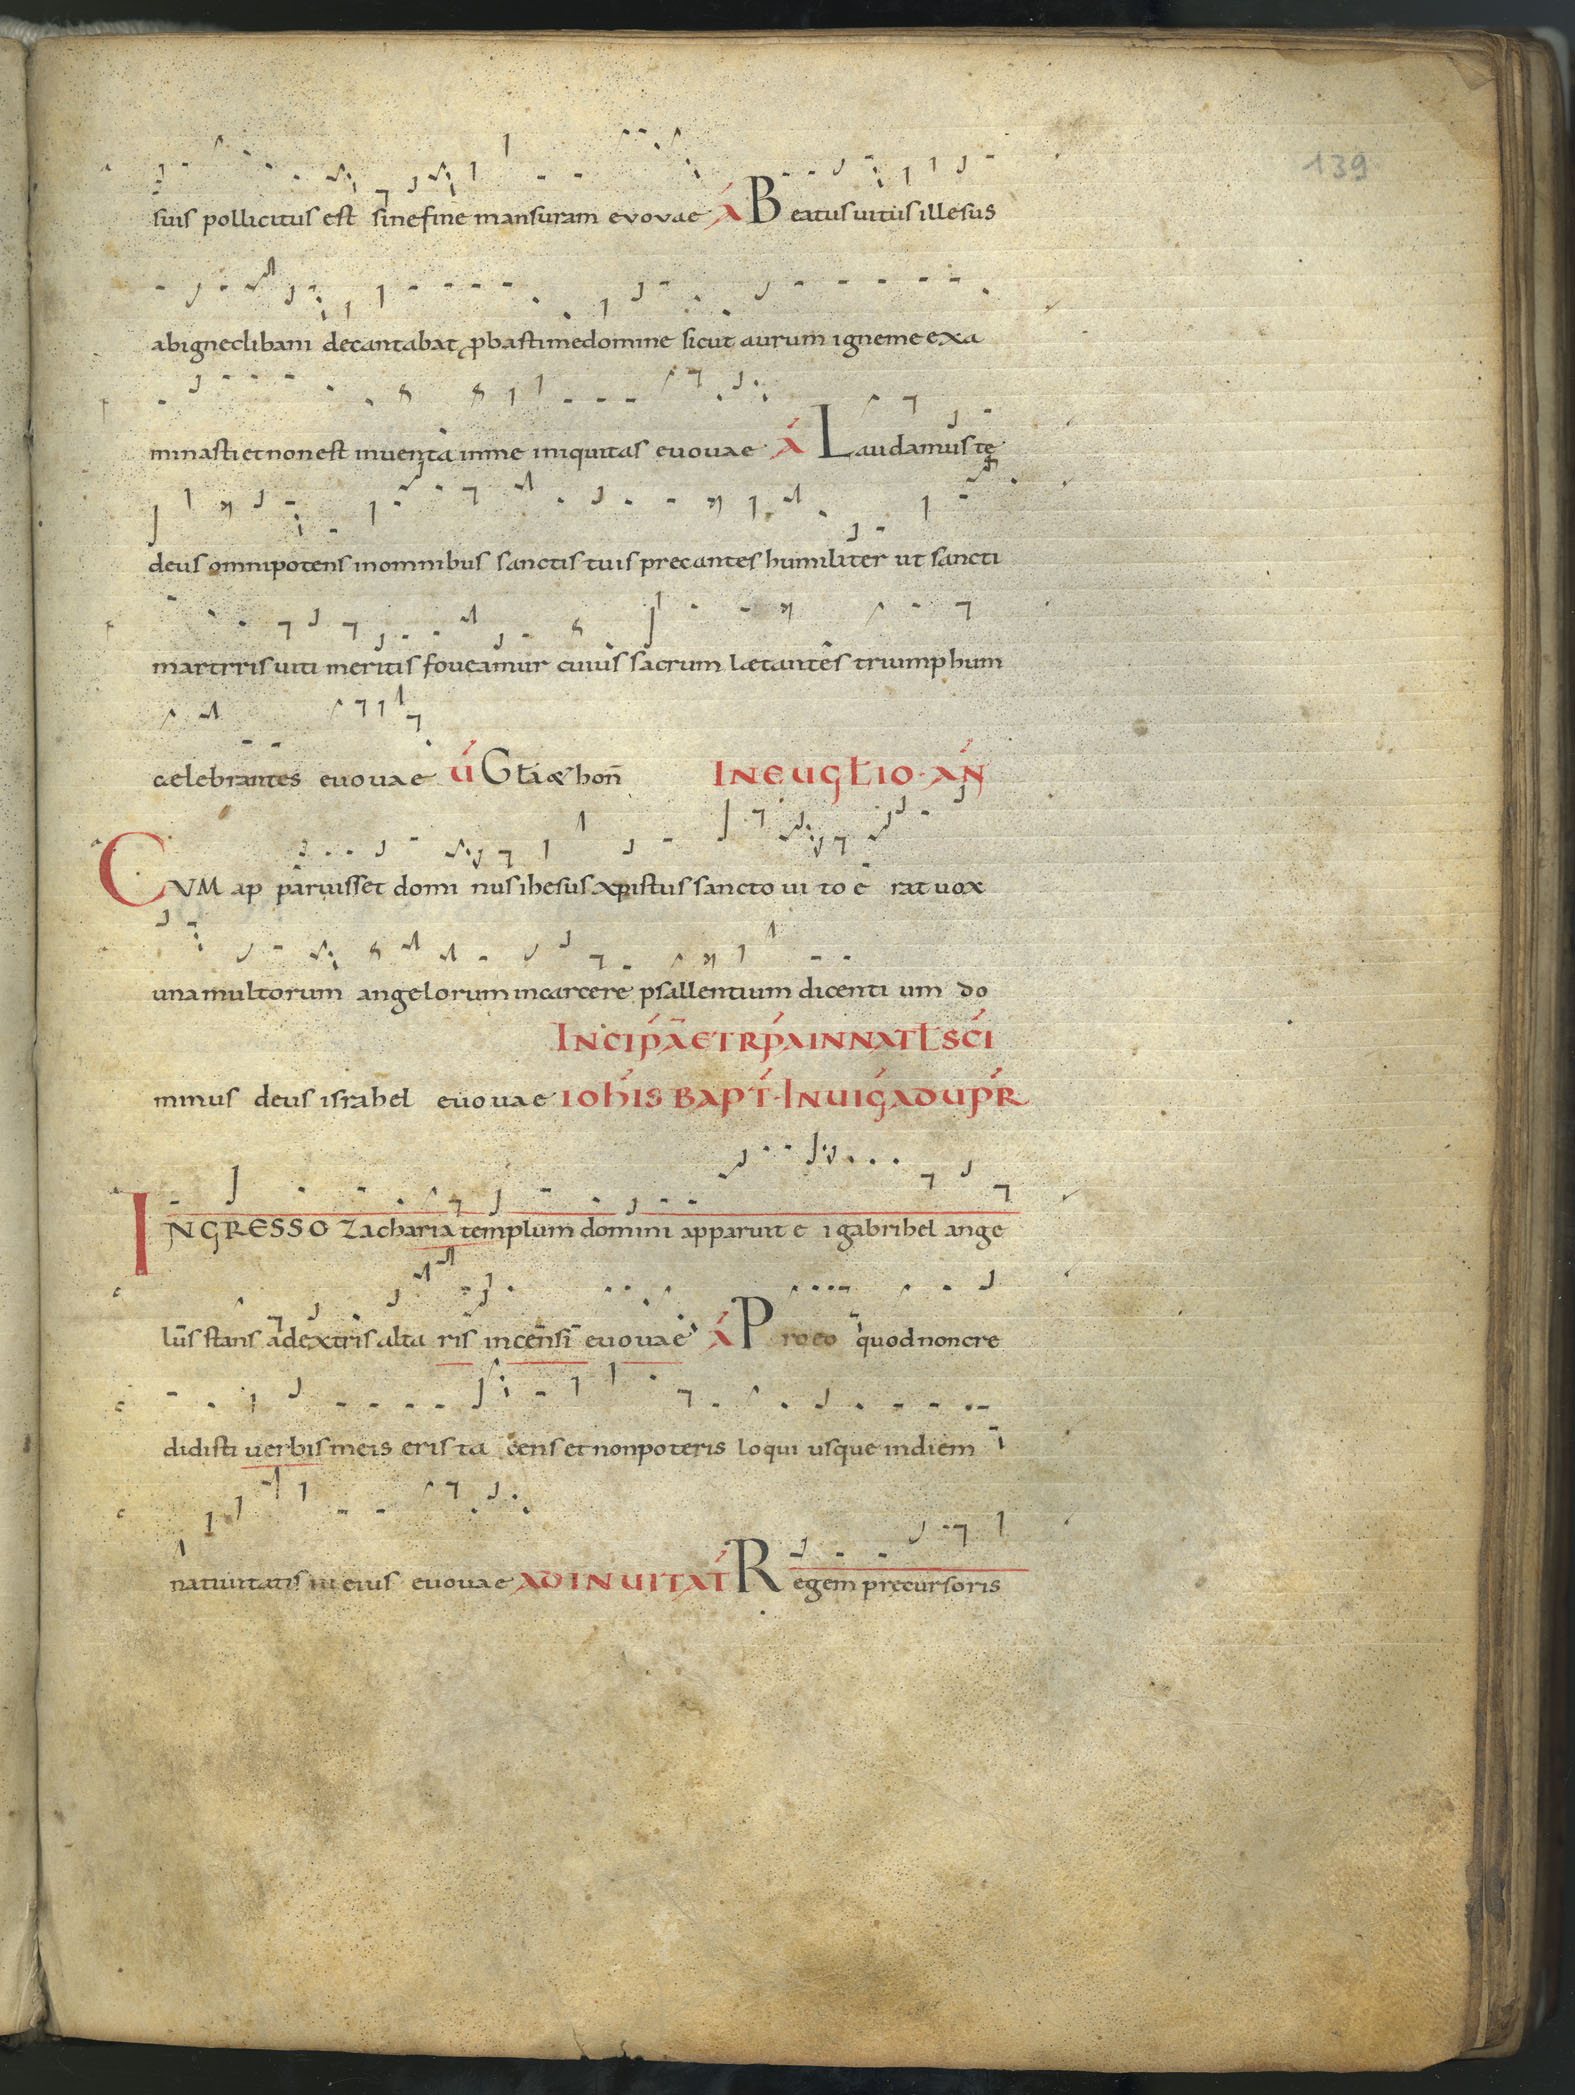 139
suis pollicitus est sine fine mansuram evovae A᷇ Beatus uitus illesus
ab igne clibani decantabat ꝓbasti me domine sicut aurum igne me exa
minasti et non est inuenta in me iniquitas euouae A᷇ Laudamus te
deus omnipotens in omnibus sanctis tuis precantes humiliter ut sancti
martyris uiti meritis foueamur cuius sacrum lætantes triumphum
celebrantes euouae V́ Gl̄a & hon̄ IN EUGL̄IO · AN̄
CVM ap paruisset domi nus ihesus xpistus sancto ui to e rat uox
una multorum angelorum in carcere psallentium dicenti um do
INCIṔ A᷇ ET RṔA IN NATL̄ SC̄I
minus deus israhel euouae IOH̄IS BAPT́ · IN UIḠ AD UP̄R
INGRESSO Zacharia templum domini apparuit e i gabrihel ange
lus stans a dextris alta ris incensi euouae A᷇ Pro eo quod non cre
didisti uerbis meis eris ta cens et non poteris loqui usque in diem
natiuitatis eius euouae AD INUITAT́ Regem precursoris